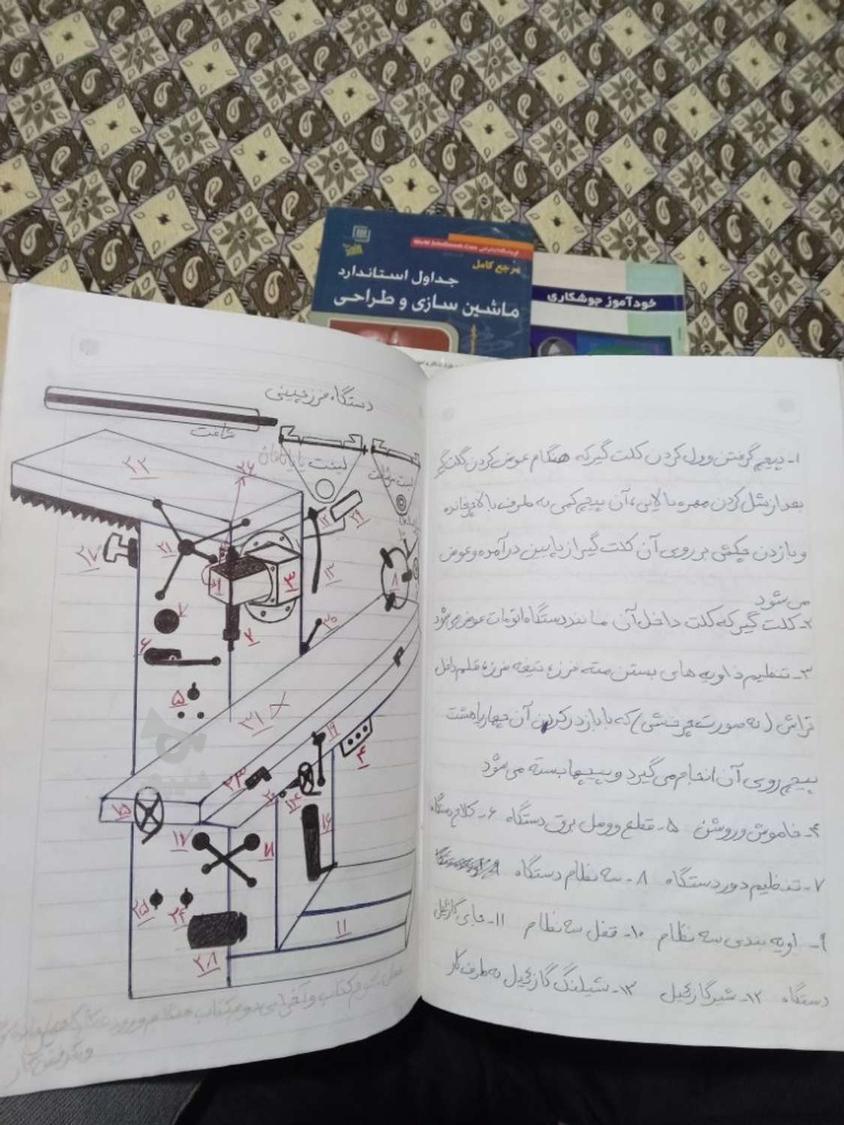 مرجع کامل
جداول استاندارد
ماشین سازی و طراحی
خودآموز جوشکاری
دستگاه فرز چینی
شافت
۱- پیچ گرفتن و ول کردن کلت گیر که هنگام عوض کردن کلت گیر
بعد از شل کردن مهره بالایی، آن پیچ کمی به طرف بالا چرخانده
و با زدن چکش بر روی آن کلت گیر از پایین در آمده و عوض
می‌شود
۲- کلت گیر که کلت داخل آن مانند دستگاه اتومات عوض می‌شود
۳- تنظیم زاویه های بستن مته فرز، تیغه فرز، قلم داخل
تراش (به صورت چرخشی) که با باز در کردن آن چهار یا هشت
پیچ روی آن انجام می‌گیرد و پیچها بسته می‌شود
۴- خاموش و روشن ۵- قطع و وصل برق دستگاه ۶- کلاج دستگاه
۷- تنظیم دور دستگاه ۸- سه نظام دستگاه
۹- زاویه بندی سه نظام ۱۰- قفل سه نظام ۱۱- جای گازئیل
دستگاه ۱۲- شیر گازئیل ۱۳- شیلنگ گازئیل به طرف کار
۲۲
۲۶
۲۷
۲۱
۱
۳
۱۲
۲۹
۱۳
۸
۷
۲
۶
۳۰
۵
۳۱
۱۹
۴
۲۳
۱۴
۱۵
۱۶
۱۷
۱۸
۲۵
۲۴
۱۱
۲۸